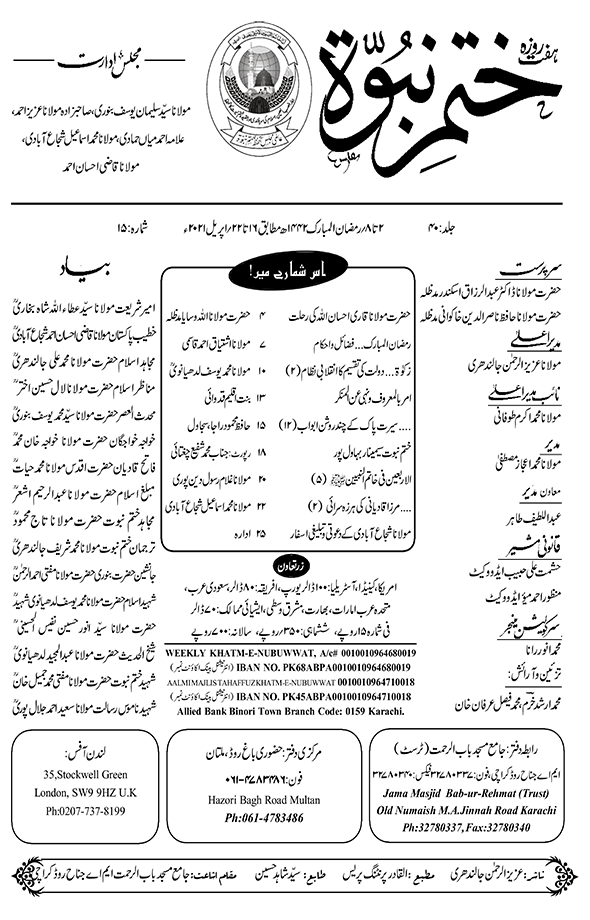 ہفت روزہ
ختم نبوۃ
مجلس ادارت
مولانا سید سلیمان یوسف بنوری، صاحبزادہ مولانا عزیز احمد،
علامہ احمد میاں حمادی، مولانا محمد اسماعیل شجاع آبادی،
مولانا قاضی احسان احمد
جلد: ۴۰
۲ تا ۸؍رمضان المبارک ۱۴۴۲ھ مطابق ۱۶ تا ۲۲؍اپریل ۲۰۲۱ء
شمارہ: ۱۵
سرپرست
حضرت مولانا ڈاکٹر عبدالرزاق اسکندر مدظلہ
حضرت مولانا حافظ ناصر الدین خاکوانی مدظلہ
مدیر اعلیٰ
مولانا عزیز الرحمٰن جالندھری
نائب مدیر اعلیٰ
مولانا محمد اکرم طوفانی
مدیر
مولانا محمد اعجاز مصطفیٰ
معاون مدیر
عبداللطیف طاہر
قانونی مشیر
حشمت علی حبیب ایڈووکیٹ
منظور احمد میؤ ایڈووکیٹ
سرکولیشن منیجر
محمد انور رانا
تزئین و آرائش:
محمد ارشد خرم، محمد فیصل عرفان خان
اس شمارے میں!
حضرت مولانا قاری احسان اللہ کی رحلت ۴ حضرت مولانا اللہ وسایا مدظلہ
رمضان المبارک... فضائل و احکام ۷ مولانا اشتیاق احمد قاسمی
زکوٰۃ... دولت کی تقسیم کا انقلابی نظام (۲) ۱۰ مولانا محمد یوسف لدھیانویؒ
امر بالمعروف و نہی عن المنکر ۱۳ بنت قلیم قدوائی
....سیرت پاک کے چند روشن ابواب (۱۲) ۱۵ حافظ محمود راجا، سجاول
ختم نبوت سیمینار بہاول پور ۱۸ رپورٹ: جناب محمد شفیع چغتائی
الاربعین فی خاتم النبیین ﷺ (۵) ۲۰ مولانا غلام رسول دین پوری
....مرزا قادیانی کی ہرزہ سرائی (۲) ۲۲ مولانا محمد اسماعیل شجاع آبادی
مولانا شجاع آبادی کے دعوتی و تبلیغی اسفار ۲۵ ادارہ
بیاد
امیر شریعت مولانا سید عطاء اللہ شاہ بخاریؒ
خطیب پاکستان مولانا قاضی احسان احمد شجاع آبادیؒ
مجاہد اسلام حضرت مولانا محمد علی جالندھریؒ
مناظر اسلام حضرت مولانا لال حسین اخترؒ
محدث العصر حضرت مولانا سید محمد یوسف بنوریؒ
خواجہ خواجگان حضرت مولانا خواجہ خان محمدؒ
فاتح قادیان حضرت اقدس مولانا محمد حیاتؒ
مبلغ اسلام حضرت مولانا عبدالرحیم اشعرؒ
مجاہد ختم نبوت حضرت مولانا تاج محمودؒ
ترجمان ختم نبوت حضرت مولانا محمد شریف جالندھریؒ
جانشین حضرت بنوری حضرت مولانا مفتی احمد الرحمنؒ
شہید اسلام حضرت مولانا محمد یوسف لدھیانوی شہیدؒ
حضرت مولانا سید انور حسین نفیس الحسینیؒ
شیخ الحدیث حضرت مولانا عبدالمجید لدھیانویؒ
شہید ختم نبوت حضرت مولانا مفتی محمد جمیل خانؒ
شہید ناموس رسالت مولانا سعید احمد جلال پوریؒ
زر تعاون
امریکا، کینیڈا، آسٹریلیا: ۱۰۰ ڈالر یورپ، افریقہ: ۸۰ ڈالر، سعودی عرب،
متحدہ عرب امارات، بھارت، مشرق وسطی، ایشیائی ممالک: ۷۰ ڈالر
فی شمارہ ۱۵ روپے، ششماہی: ۳۵۰ روپے، سالانہ: ۷۰۰ روپے
WEEKLY KHATM-E-NUBUWWAT, A/c# 0010010964680019
(انٹرنیشنل بینک اکاؤنٹ نمبر) IBAN NO. PK68ABPA0010010964680019
AALMI MAJLIS TAHAFFUZ KHATM-E-NUBUWWAT 0010010964710018
(انٹرنیشنل بینک اکاؤنٹ نمبر) IBAN NO. PK45ABPA0010010964710018
Allied Bank Binori Town Branch Code: 0159 Karachi.
رابطہ دفتر: جامع مسجد باب الرحمت (ٹرسٹ)
ایم اے جناح روڈ کراچی، فون: ۳۲۷۸۰۳۳۷ فیکس: ۳۲۷۸۰۳۴۰
Jama Masjid Bab-ur-Rehmat (Trust)
Old Numaish M.A.Jinnah Road Karachi
Ph:32780337, Fax:32780340
مرکزی دفتر: حضوری باغ روڈ، ملتان
فون: ۰۶۱-۴۷۸۳۴۸۶
Hazori Bagh Road Multan
Ph:061-4783486
لندن آفس:
35,Stockwell Green
London, SW9 9HZ U.K
Ph:0207-737-8199
عزیز الرحمٰن جالندھری مطبع: القادر پرنٹنگ پریس طابع: سید شاہد حسین مقام اشاعت: جامع مسجد باب الرحمت ایم اے جناح روڈ کراچی